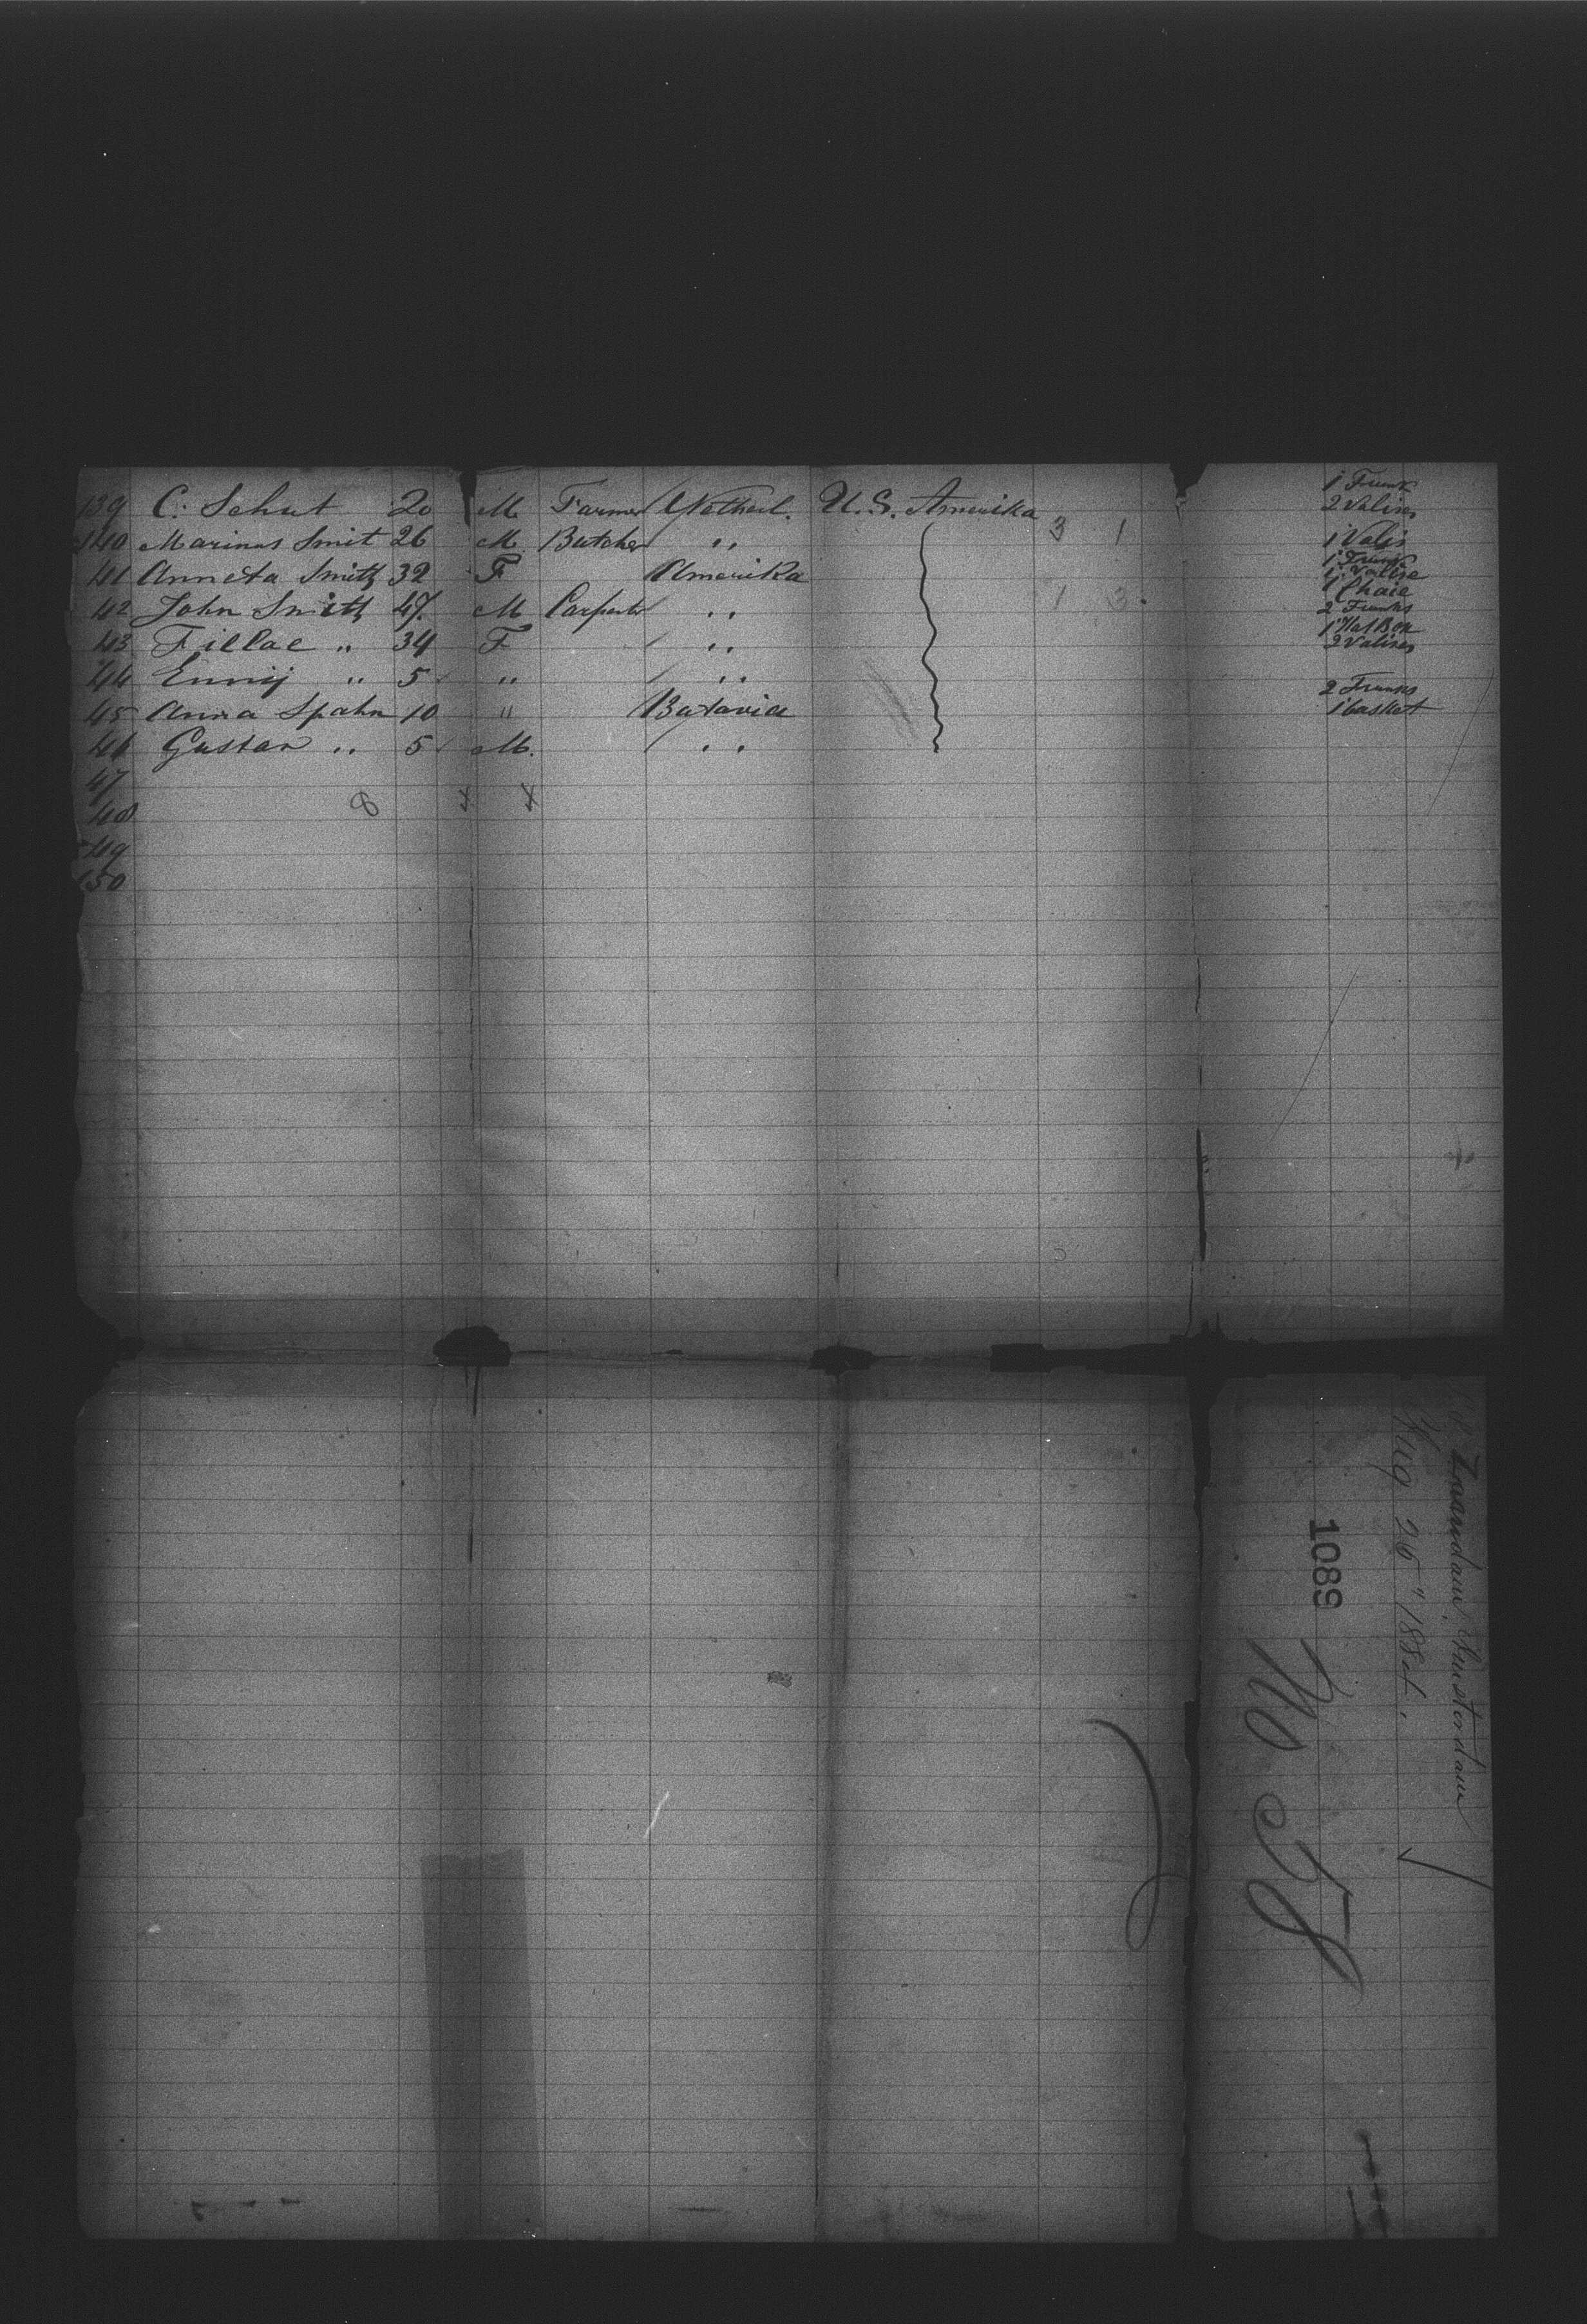 139 C. Schut 20 M Farmer Netherl. U.S. Amerika 1 Trunk 2 Valises
140 Marinus Smit 26 M Butcher " 3 1 1 Valis
41 Anneta Smith 32 F Amerika 1 Trunk 1 Valise
42 John Smith 47 M Carpent " 1 3 1 Chair 2 Trunks
43 Fillae " 34 F " 1 Hat Box 2 Valises
44 Ennij " 5 " "
45 Anna Spahn 10 " Batavia 2 Trunks 1 basket
46 Gustav " 5 M. "
47
48 8 4 4
49
150
Zaandam, Amsterdam
Aug 26" 1884.
1089
No 58